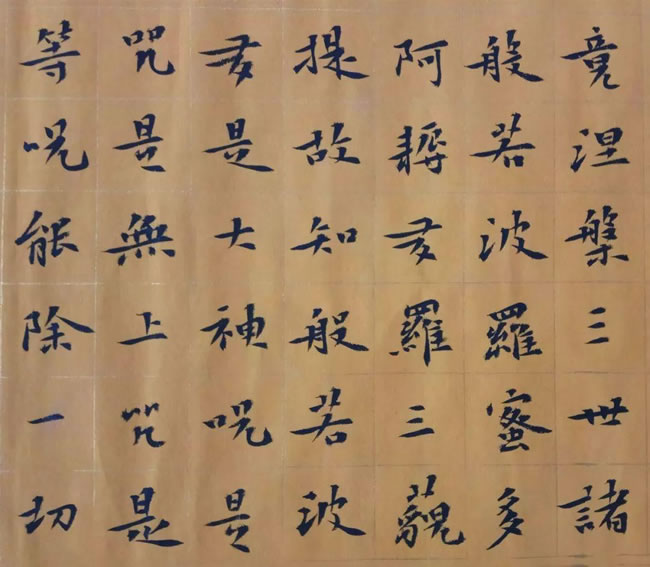 竟涅槃三世諸
般若波羅蜜多
阿耨多羅三藐
提故知般若波
多是大神呪是
咒是無上咒是
等呪能除一切